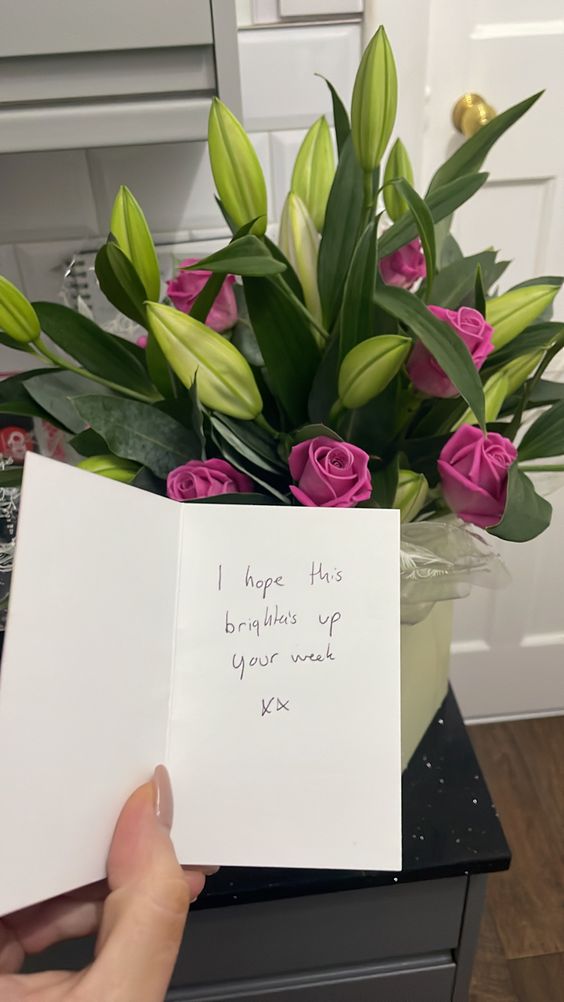 I hope this
brightens up
your week
xx